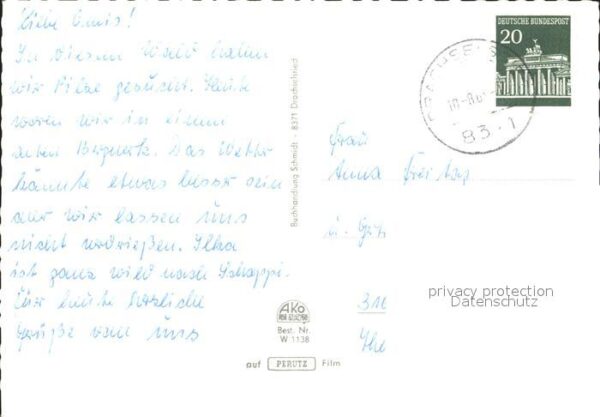 Liebe Omis!
In diesem Wald haben
wir Pilze gesucht. Heute
waren wir in einem
alten Bergwerk. Das Wetter
könnte etwas besser sein
aber wir lassen uns
nicht verdrießen. Ilka
ist ganz wild nach Schappi.
Für heute herzliche
Grüße von uns
Buchhandlung Schmidt · 8371 Drachselsried
DEUTSCHE BUNDESPOST
20
83·1
Frau
Anna Freitag
privacy protection
Datenschutz
AKO
Best. Nr.
W 1138
auf PERUTZ Film